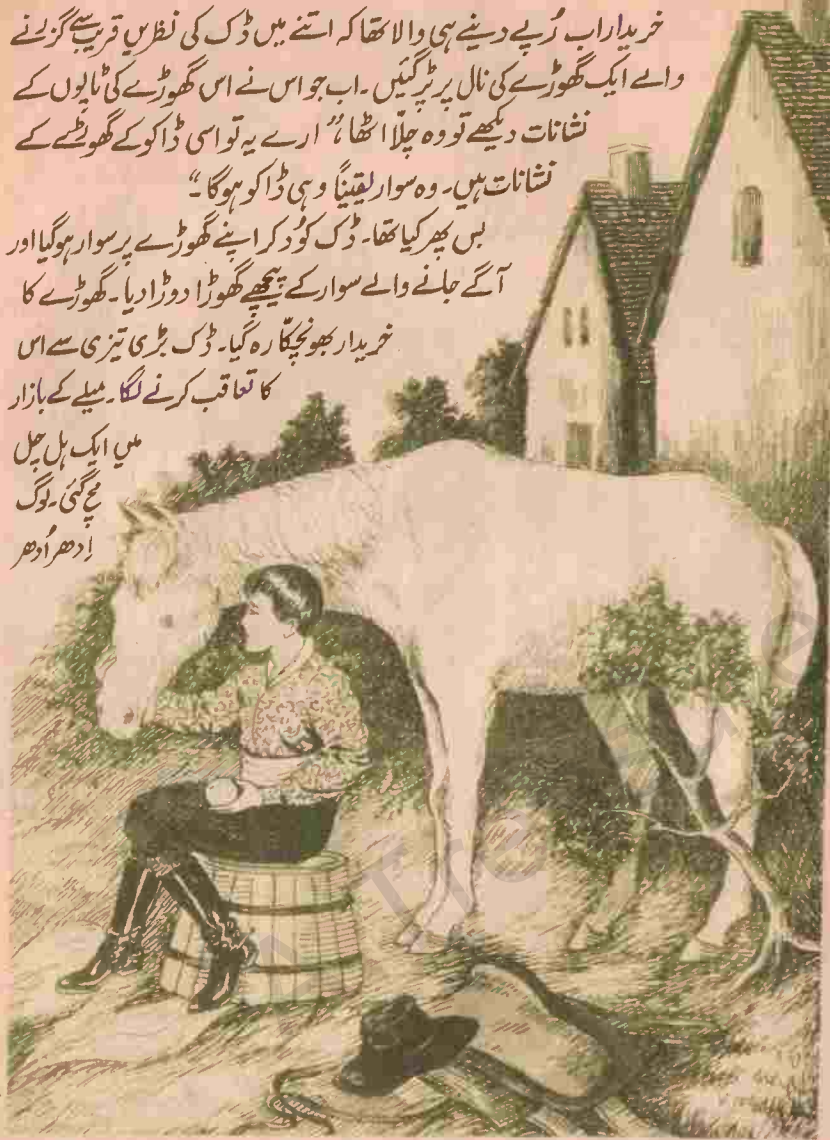 خریدار اب رُپے دینے ہی والا تھا کہ اتنے میں ڈک کی نظریں قریب سے گزرنے
والے ایک گھوڑے کی نال پر پڑ گئیں۔ اب جو اس نے اس گھوڑے کی ٹاپوں کے
نشانات دیکھے تو وہ چلّا اٹھا، "ارے یہ تو اسی ڈاکو کے گھوڑے کے
نشانات ہیں۔ وہ سوار یقیناً وہی ڈاکو ہوگا۔"
بس پھر کیا تھا۔ ڈک کُود کر اپنے گھوڑے پر سوار ہوگیا اور
آگے جانے والے سوار کے پیچھے گھوڑا دوڑا دیا۔ گھوڑے کا
خریدار بھونچکّا رہ گیا۔ ڈک بڑی تیزی سے اس
کا تعاقب کرنے لگا۔ میلے کے بازار
میں ایک ہل چل
مچ گئی۔ لوگ
اِدھر اُدھر